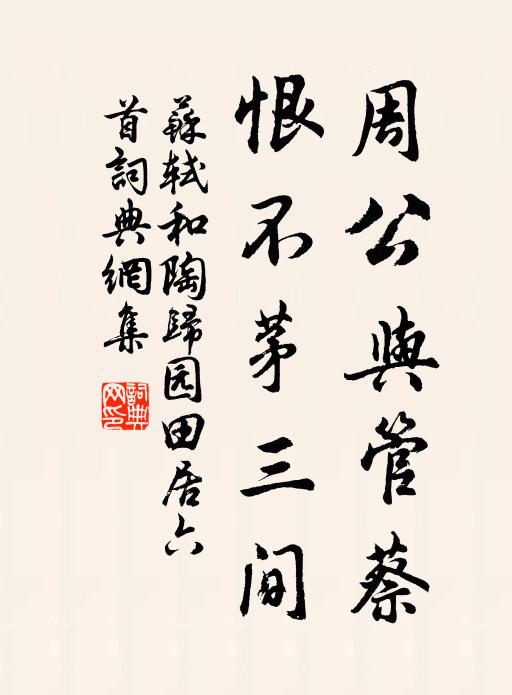 周公與管蔡
恨不茅三间
蘇轼和陶歸园田居六
首詞典網集
詞典
网印